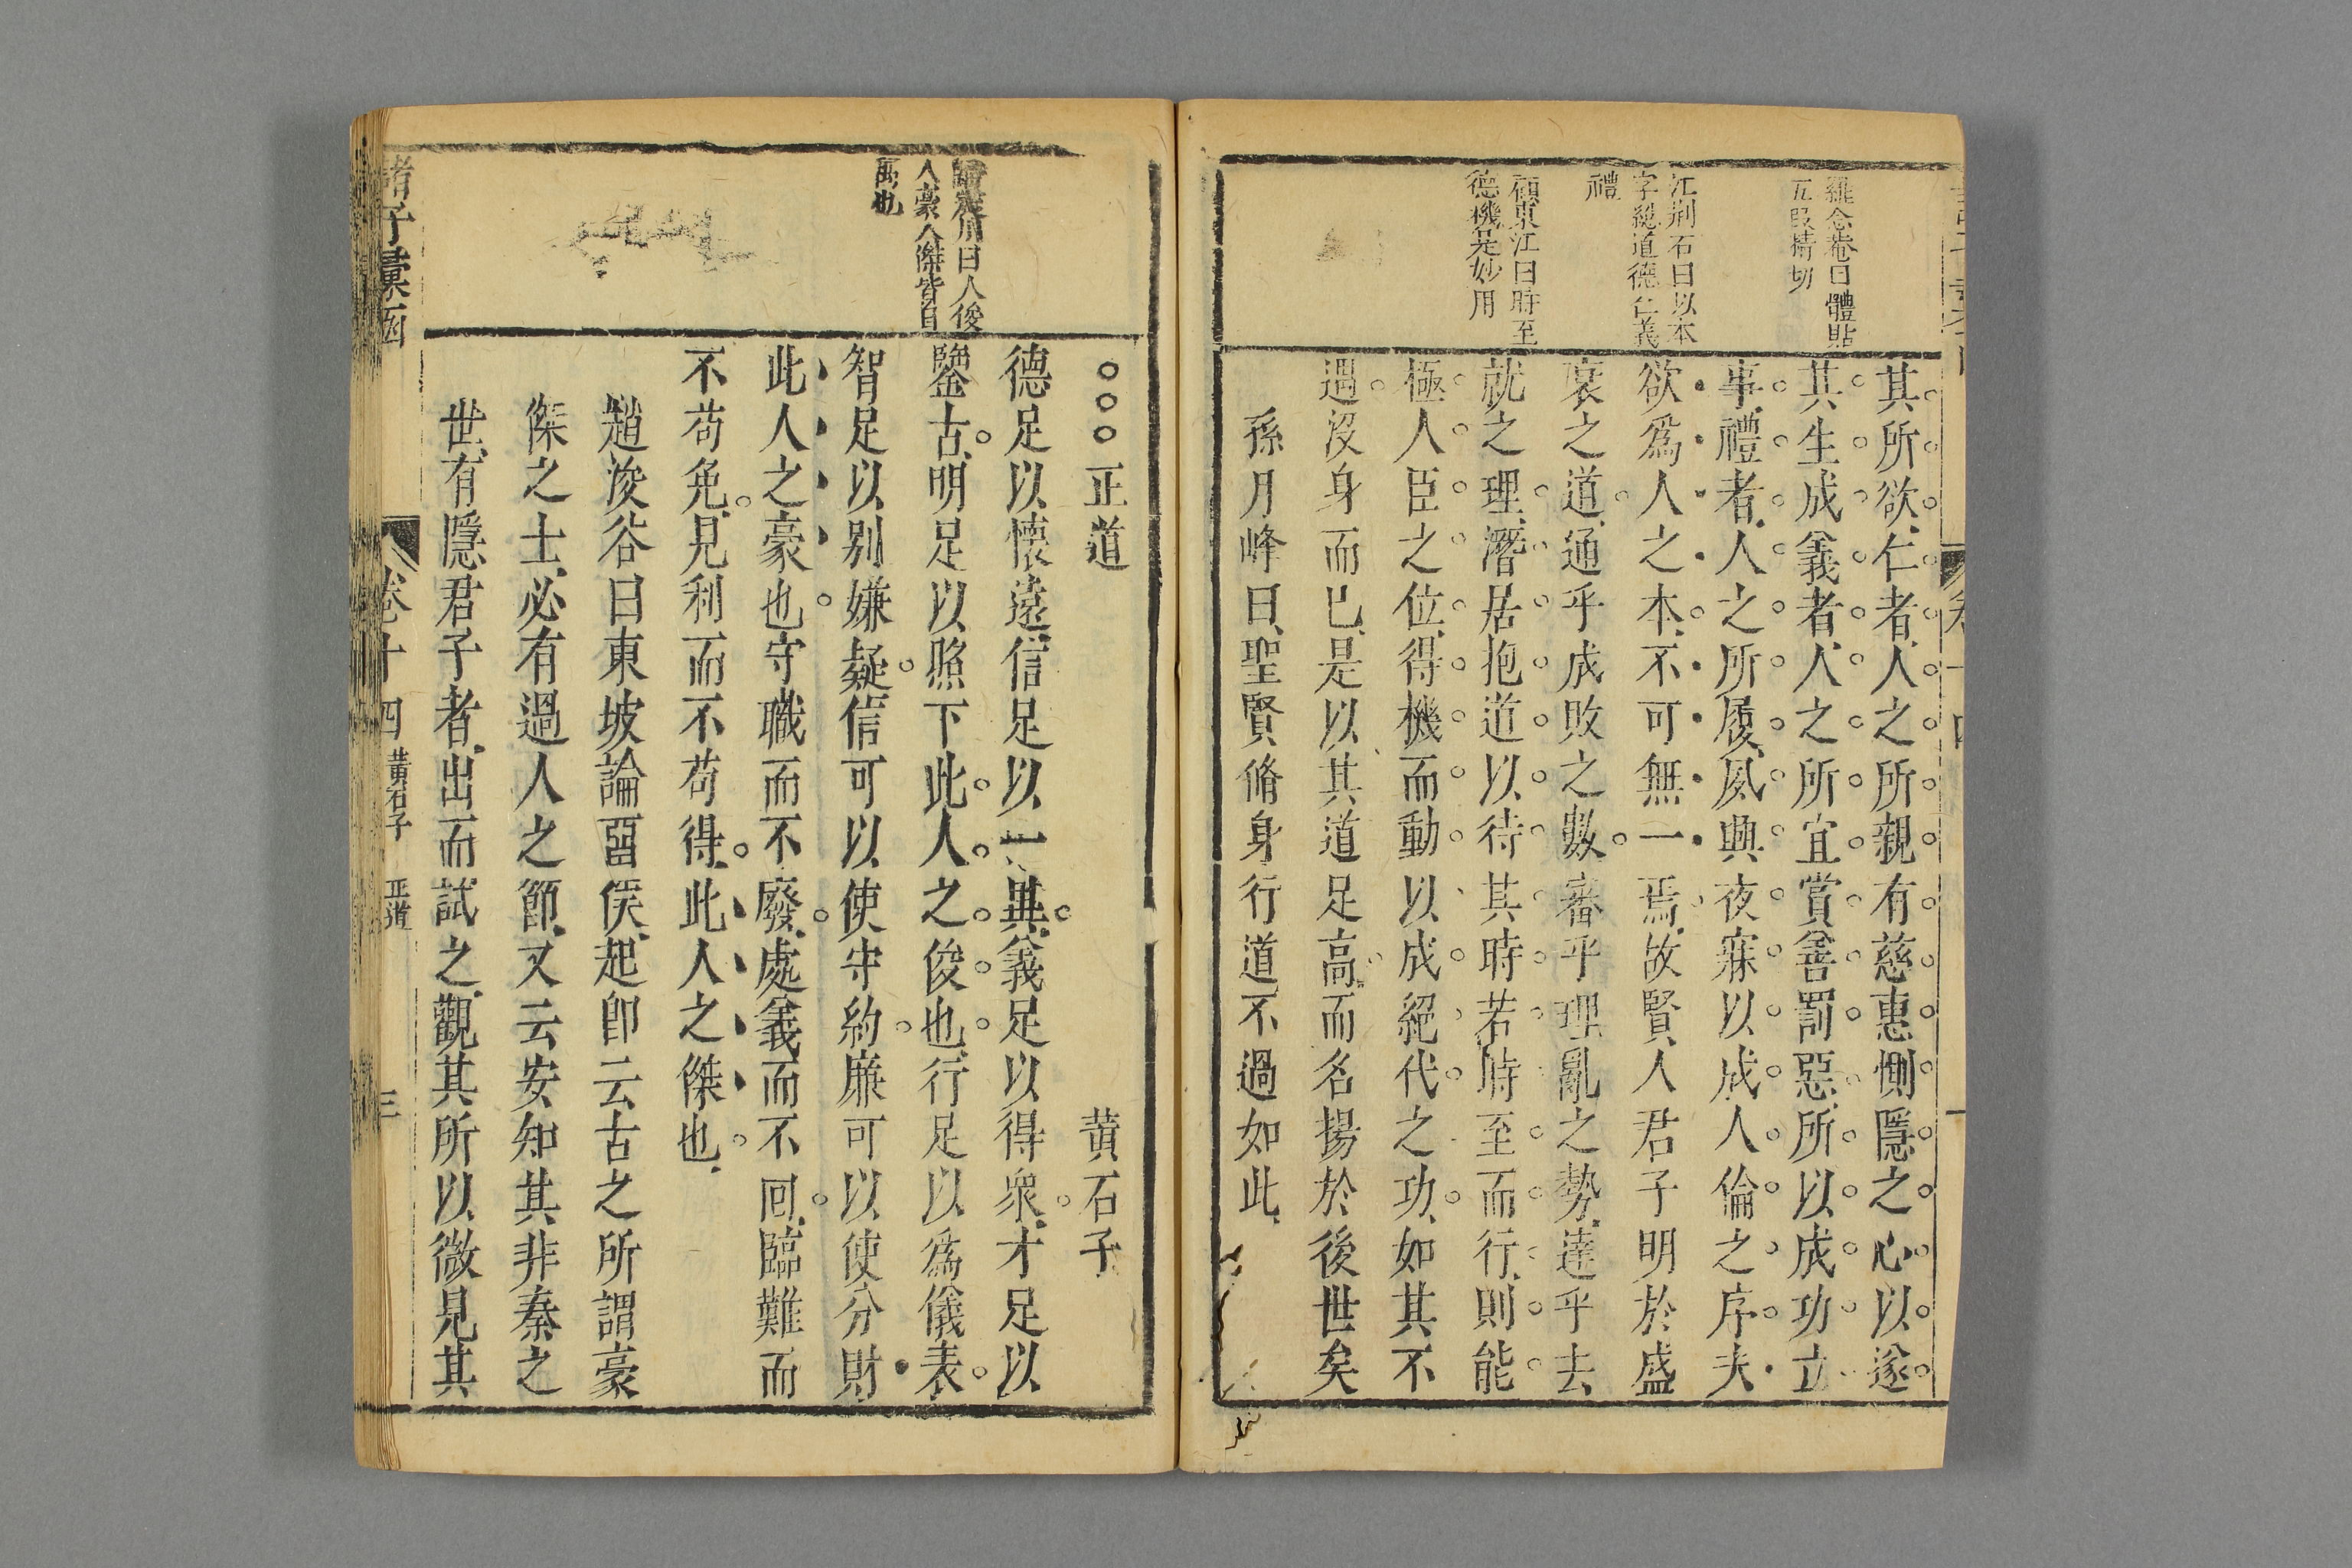 羅念菴曰體貼
五段精切
江荊石曰以本
字總道德仁義
禮
顧東江曰時至
德機是妙用
其所欲仁者人之所親有慈惠惻隱之心以遂
其生成義者人之所宜賞善罰惡所以成功立
事禮者人之所履夙興夜寐以成人倫之序夫
欲爲人之本不可無一焉故賢人君子明於盛
衰之道通乎成敗之數審乎理亂之勢達乎去
就之理潛居抱道以待其時若時至而行則能
極人臣之位得機而動以成絕代之功如其不
遇沒身而已是以其道足高而名揚於後世矣
孫月峰曰聖賢脩身行道不過如此
川曰人俊
人豪人傑皆自
禹也
正道 黃石子
德足以懷遠信足以一異義足以得衆才足以
鑒古明足以照下此人之俊也行足以爲儀表
智足以別嫌疑信可以使守約廉可以使分財
此人之豪也守職而不廢處義而不囘臨難而
不苟免見利而不苟得此人之傑也
趙浚谷曰東坡論畱侯起卽云古之所謂豪
傑之士必有過人之節又云安知其非秦之
世有隱君子者出而試之觀其所以微見其
諸子彙函
卷十四 黃石子 正道 三